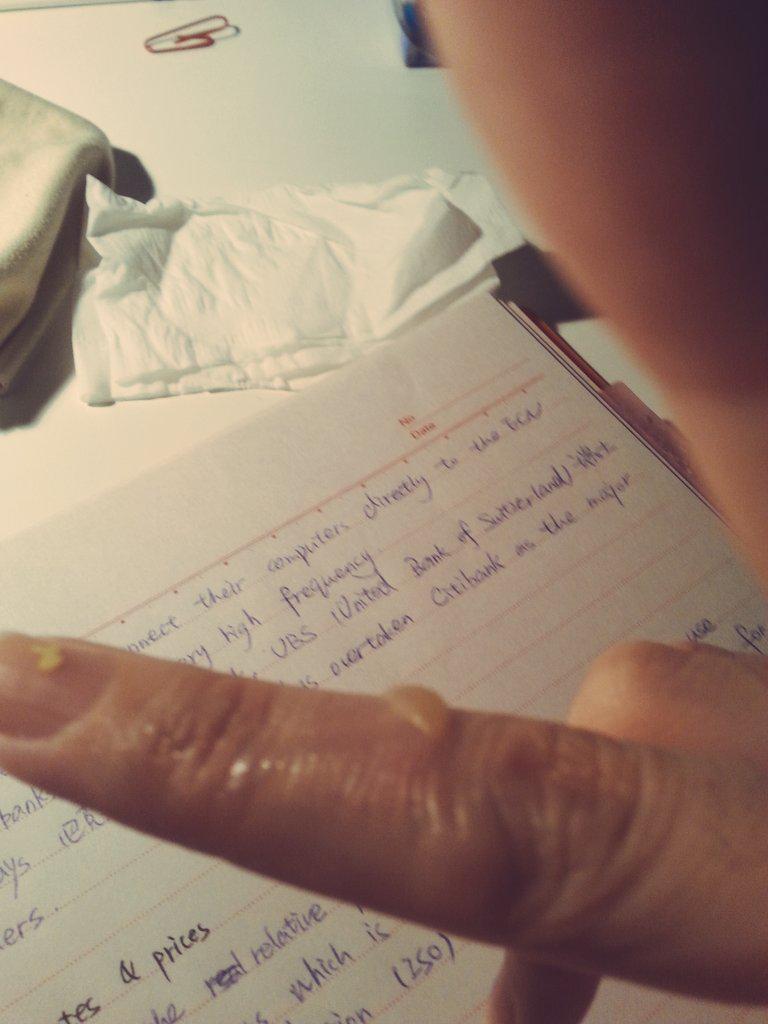 No
Date
nnect their computers directly to the ECN
ery high frequency
UBS (United Bank of Switzerland)
is overtaken Citibank as the major
use
for
bank
ays
ers.
tes & prices
he relative
s which is
ion (250)